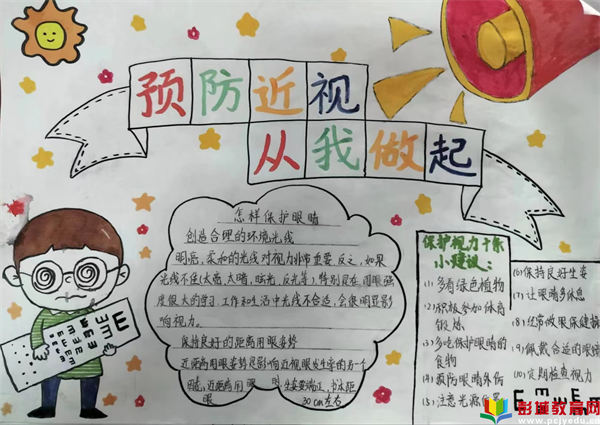 预防近视
从我做起
怎样保护眼睛
创造合理的环境光线
明亮、柔和的光线对视力非常重要 反之,如果
光线不佳(太亮、太暗、眩光、反光等)特别是在用眼强
度很大的学习、工作和生活中光线不合适,会很明显影
响视力。
保持良好的距离用眼姿势
近距离用眼姿势是影响近视眼发生率的另一个
因素,近距离用眼
眼
30cm左右
保护视力十条
小建议:
(1)多看绿色植物
(2)积极参加体育
锻炼
(3)多吃保护眼睛的
食物
(4)预防眼睛外伤
(5)注意光源
(6)保持良好坐姿
(7)让眼睛多休息
(8)经常做眼保健操
(9)佩戴合适的眼镜
(10)定期检查视力
彭城教育网
www.pcjyedu.cn